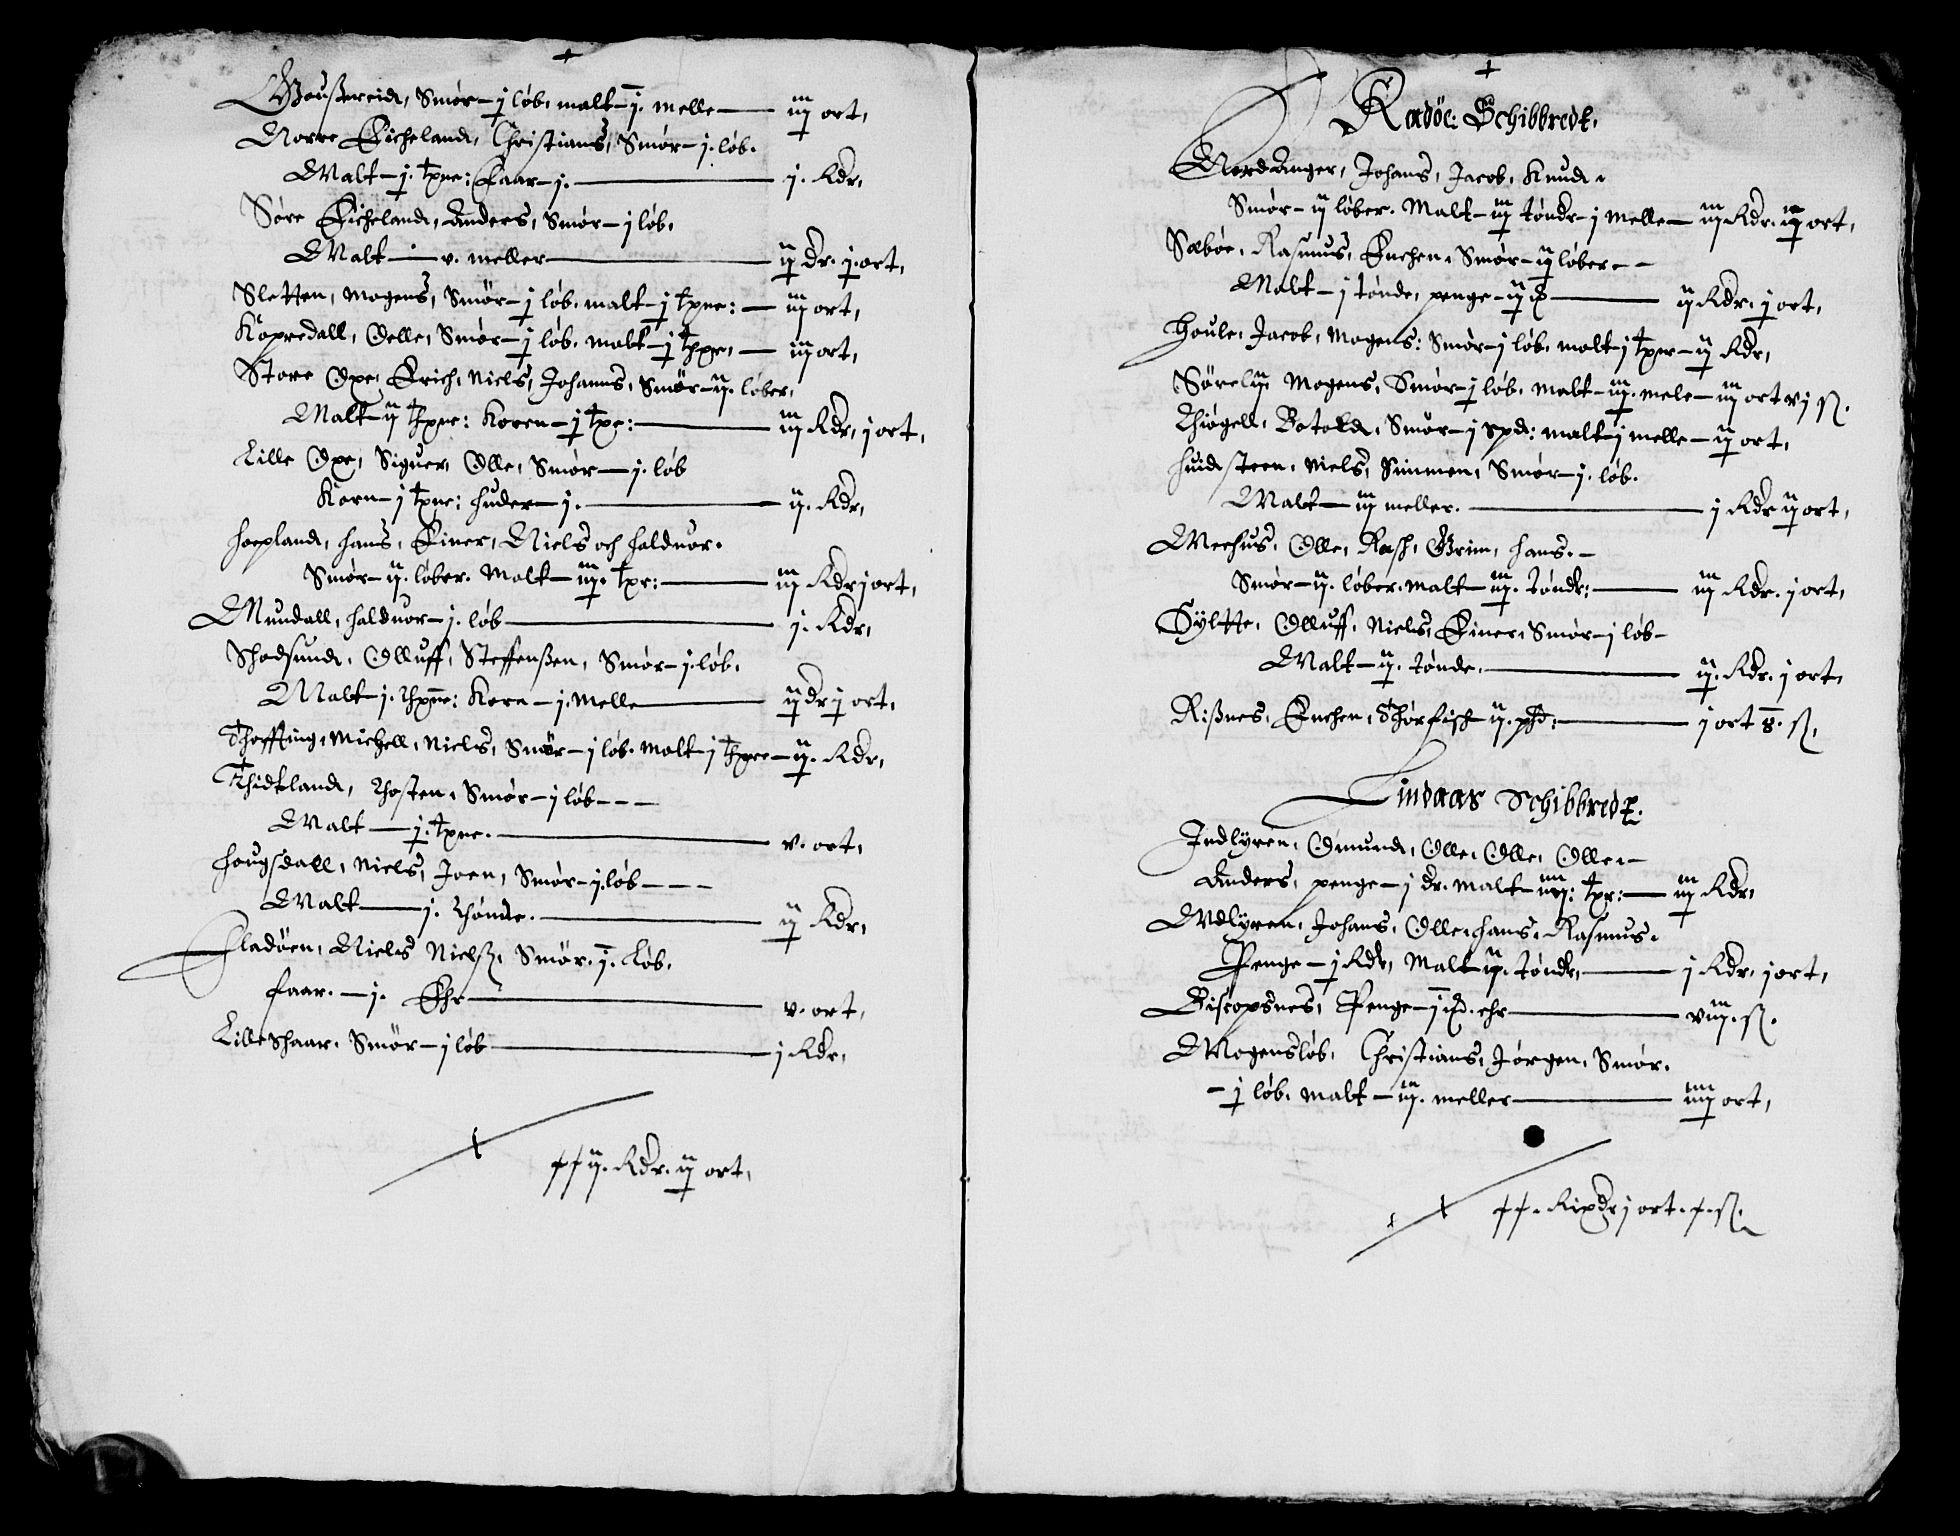 Goußereid, Smør - j løb, malt - j. melle — iij ort,
Norre Eicheland, Christians, Smør - j. løb.
Malt - j. tpne: Faar - j. — j. Rdr,
Søre Eicheland, Anders, Smør - j løb.
Malt — v. meller — ij dr. j. ort,
Sletten, Mogens, Smør - j løb, malt - j tpne: — iij ort,
Kopredall, Oelle, Smør - j løb, malt - j thpe, — iij ort,
Store Oxe, Erich, Niels, Johanns, Smør - ij. løber,
Malt - ij thpne: Koren - j tpe: — iij Rdr, j ort,
Lille Oxe, Siguer, Olle, Smør - j. løb
Korn - j tpne: huder - j. — ij. Rdr,
hopland, hans, Einer, Niels och halduor.
Smør - ij. løber. Malt - iij. tpr: — iij Rdr j ort,
Mundall, halduor - j. løb — j. Rdr,
Skodsund, Olluff, Steffenßen, Smør - j. løb.
Malt - j. thpne: Korn - j. Melle — ij dr j ort,
Michell, Niels, Smør - j løb. Malt - j thpne - ij. Rdr,
Thosten, Smør - j løb - - -
Malt — j. tpne. — v. ort,
hougsdall, Niels, Joen, Smør - j. løb - - -
Malt — j. thønde. — ij Rdr,
Fladøen, Niels Nielß, Smør. j. Løb.
Faar. - j. Ehr — v. ort,
Lille Shaar. Smør - j løb — j Rdr,
ij. Rdr. ij ort,
Radøe: Schibbredt.
Nordanger, Johans, Jacob, Knud.
Smør - ij løber. Malt - iij tøndr - j Melle - iij Rdr. iij ort,
Sæbøe, Rasmus, Enchen, Smør - ij løber - -
Malt - j tønde, penge - ij ß — ij Rdr. j ort,
Houle, Jacob, Mogens: Smør - j løb, malt j tpne - ij Rdr,
Mogens, Smør - j løb, Malt - iij. mele - iij ort vj ß.
Botold, Smør - j spd: malt - j melle - ij ort,
huidsteen, Niels, Simmen, Smør - j. løb.
Malt — iij meller. — j Rdr ij ort,
Meehus, Olle, Rasß, Grim, hans. -
Smør - ij. løber. malt - iij. tøndr: — iij Rdr. j ort,
Syltte, Olluff, Niels, Einer, Smør - j løb -
Malt - ij. tønde. — ij. Rdr. j ort,
Rißnes, Enchen, Thørfisch ij. pß: — j ort 8. ß.
Lindaas Schibbredt.
Indlyren, Omund, Olle, Olle, Olle. -
Anders, penge - j dr. malt - iiij: tpr: — iij Rdr,
Vdlyren, Johans, Olle, hans, Rasmus.
Penge - j Rdr, Malt ij. tøndr, — j Rdr. j ort,
Bisopsnes, Penge - j ehr — viij. ß.
Mogensløb, Christians, Jørgen, Smør.
- j løb, malt - iij. meller — iiij ort,
Rixdr j ort. ß.